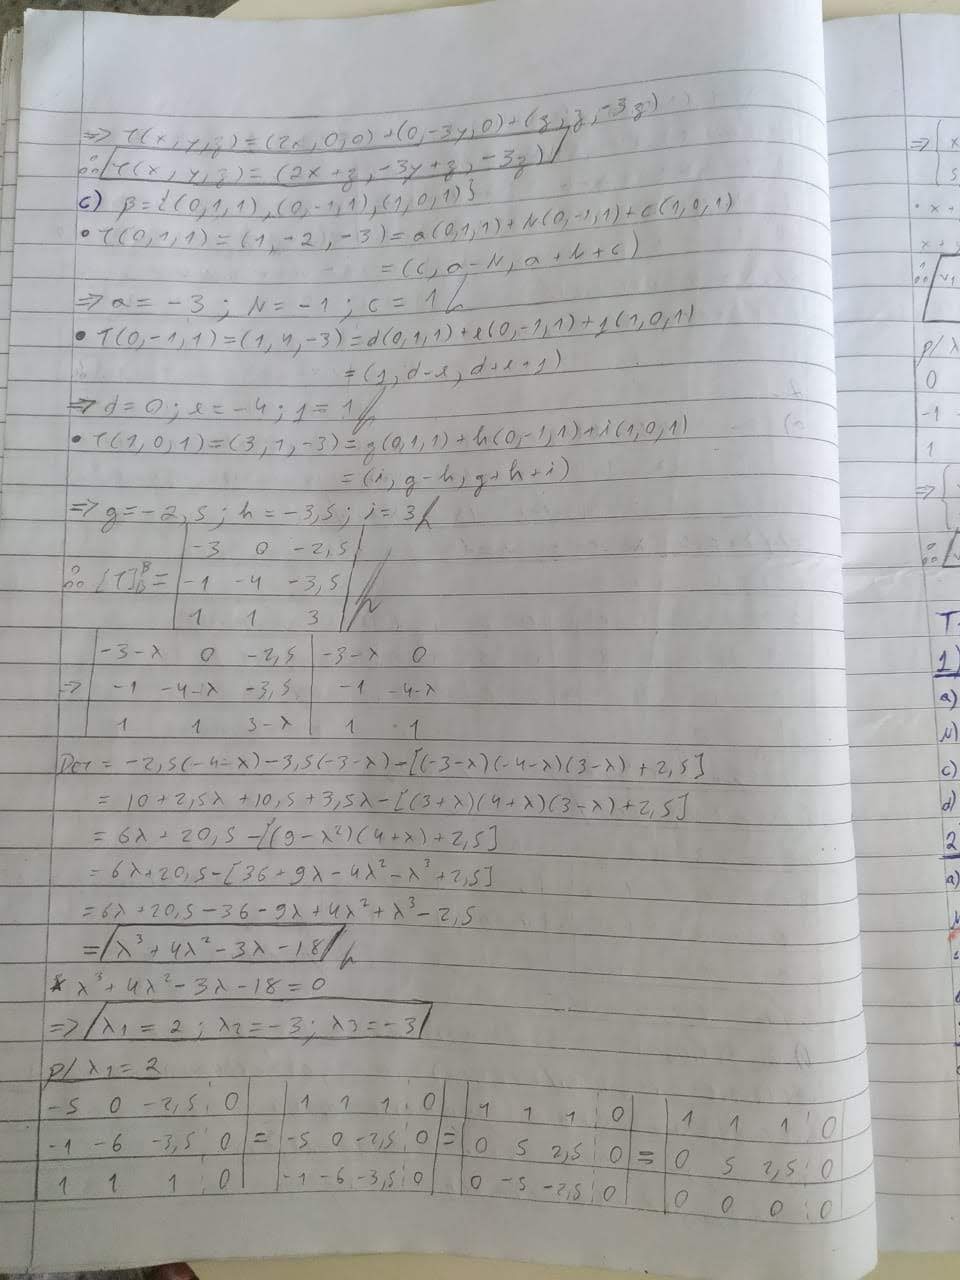 => T(x, y, z) = (2x, 0, 0) + (0, -3y, 0) + (z, z, -3z)
∴ T(x, y, z) = (2x + z, -3y + z, -3z)
c) β = {(0, 1, 1), (0, -1, 1), (1, 0, 1)}
• T(0, 1, 1) = (1, -2, -3) = a(0, 1, 1) + b(0, -1, 1) + c(1, 0, 1)
= (c, a - b, a + b + c)
=> a = -3 ; b = -1 ; c = 1
• T(0, -1, 1) = (1, 4, -3) = d(0, 1, 1) + e(0, -1, 1) + f(1, 0, 1)
= (f, d - e, d + e + f)
=> d = 0 ; e = -4 ; f = 1
• T(1, 0, 1) = (3, 1, -3) = g(0, 1, 1) + h(0, -1, 1) + i(1, 0, 1)
= (i, g - h, g + h + i)
=> g = -2,5 ; h = -3,5 ; i = 3
-3 0 -2,5
∴ [T]_β^β = -1 -4 -3,5
1 1 3
-3-λ 0 -2,5 -3-λ 0
=> -1 -4-λ -3,5 -1 -4-λ
1 1 3-λ 1 1
Det = -2,5(-4-λ) - 3,5(-3-λ) - [(-3-λ)(-4-λ)(3-λ) + 2,5]
= 10 + 2,5λ + 10,5 + 3,5λ - [(3+λ)(4+λ)(3-λ) + 2,5]
= 6λ + 20,5 - [(9 - λ²)(4+λ) + 2,5]
= 6λ + 20,5 - [36 + 9λ - 4λ² - λ³ + 2,5]
= 6λ + 20,5 - 36 - 9λ + 4λ² + λ³ - 2,5
= λ³ + 4λ² - 3λ - 18
* λ³ + 4λ² - 3λ - 18 = 0
=> λ1 = 2 ; λ2 = -3 ; λ3 = -3
p/ λ1 = 2
-5 0 -2,5 0 1 1 1 0 1 1 1 0 1 1 1 0
-1 -6 -3,5 0 = -5 0 -2,5 0 = 0 5 2,5 0 = 0 5 2,5 0
1 1 1 0 -1 -6 -3,5 0 0 -5 -2,5 0 0 0 0 0
=> { x
5
• x +
x + y
∴ v1
p/ λ
0
-1 -
1
=> {
∴
T
1)
a)
b)
c)
d)
2
a)